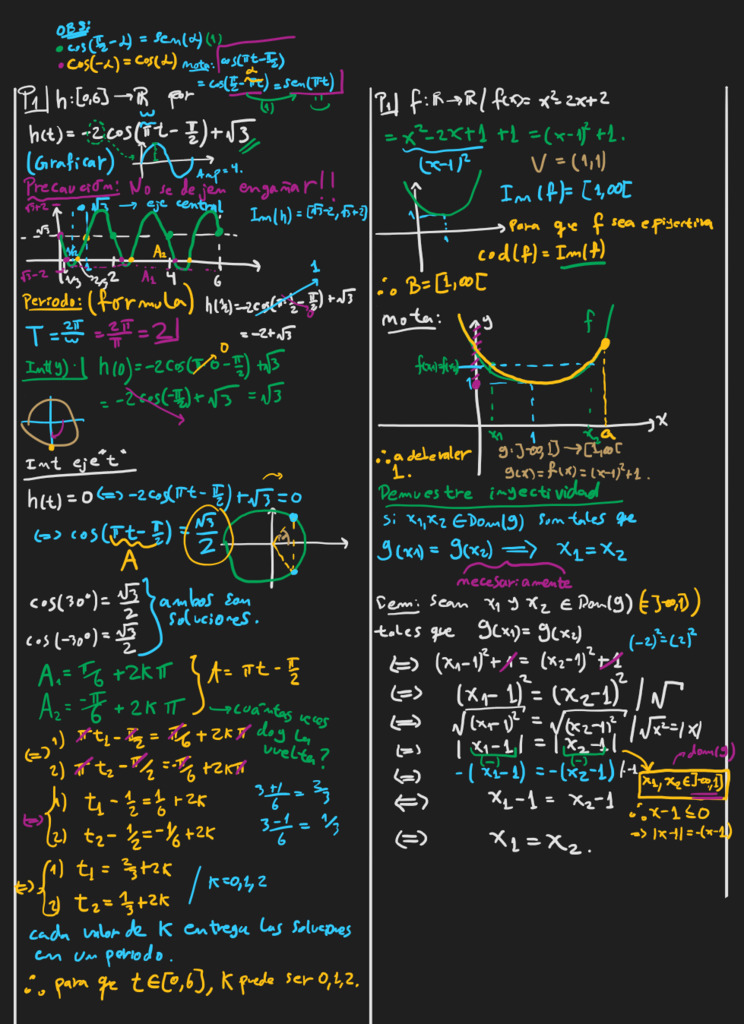 OBS:
• cos(π/2 - α) = sen(α) (1)
• cos(-α) = cos(α)
nota: cos(πt - π/2)
= cos(π/2 - πt) = sen(πt)
α
(1)
P1| h: [0,6] → ℝ por
w
h(t) = -2 cos(πt - π/2) + √3
(Graficar)
Amp = 4.
Precaución: No se dejen engañar!!
√3+2
√3
→ eje central
Im(h) = [√3-2, √3+2]
√3
A2
√3-2
1/2
1
A1
1/3
2/3
2
4
6
Periodo: (formula)
h(1/2) = -2cos(π·1/2 - π/2) + √3
1
T = 2π/w = 2π/π = 2
= -2+√3
Int(y):| h(0) = -2cos(π·0 - π/2) + √3
0
= -2cos(-π/2) + √3 = √3
Int eje "t"
h(t) = 0 <=> -2cos(πt - π/2) + √3 = 0
<=> cos(πt - π/2) = √3/2
A
cos(30°) = √3/2
cos(-30°) = √3/2
ambos son
soluciones.
A1 = π/6 + 2kπ
A2 = -π/6 + 2kπ
A = πt - π/2
→ cuántas veces
doy la
vuelta?
<=> 1) πt1 - π/2 = π/6 + 2kπ
2) πt2 - π/2 = -π/6 + 2kπ
<=> 1) t1 - 1/2 = 1/6 + 2k
2) t2 - 1/2 = -1/6 + 2k
3+1/6 = 2/3
3-1/6 = 1/3
<=> 1) t1 = 2/3 + 2k
2) t2 = 1/3 + 2k
/ k=0,1,2
cada valor de K entrega las soluciones
en un periodo.
∴ para que t∈[0,6], K puede ser 0,1,2.
P1| f: ℝ→ℝ / f(x) = x²-2x+2
= x²-2x+1 +1 = (x-1)²+1.
(x-1)²
V = (1,1)
Im(f) = [1,∞[
1
1
→ Para que f sea epiyectiva
cod(f) = Im(f)
∴ B = [1,∞[
nota:
y
f
f(x1)=f(x2)
1
x1
1
x2
a
x
∴ a debe valer
1.
g: ]-∞,1] → [1,∞[
g(x) = f(x) = (x-1)²+1.
Demuestre inyectividad
si x1,x2 ∈ Dom(g) son tales que
g(x1) = g(x2) ⟹ x1 = x2
necesariamente
Dem: Sean x1 y x2 ∈ Dom(g) (∈ ]-∞,1])
tales que g(x1) = g(x2)
(-2)² = (2)²
<=> (x1-1)²+1 = (x2-1)²+1
<=> (x1-1)² = (x2-1)² / √
<=> √(x1-1)² = √(x2-1)² / √x² = |x|
<=> |x1-1| = |x2-1|
(-)
(-)
→ dom(g)
<=> -(x1-1) = -(x2-1) /·-1
x1, x2 ∈ ]-∞,1]
<=> x1-1 = x2-1
∴ x-1 ≤ 0
=> |x-1| = -(x-1)
<=> x1 = x2.